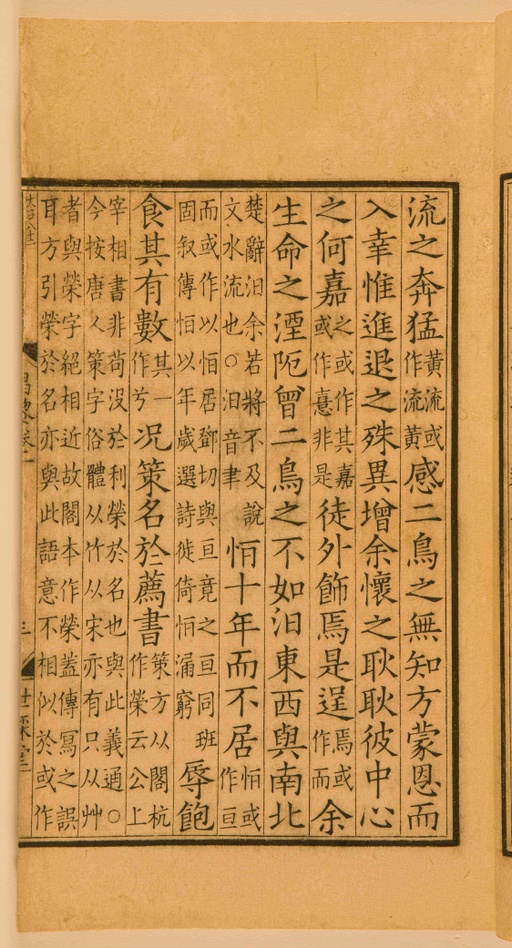 流之奔猛黃流或作流黃感二鳥之無知方蒙恩而
入幸惟進退之殊異增余懷之耿耿彼中心
之何嘉之或作其嘉或作憙非是徒外飾焉是逞焉或作而余
生命之湮阨曾二鳥之不如汩東西與南北
楚辭汩余若將不及說文水流也○汩音聿恒十年而不居恒或作亘
而或作以恒居鄧切與亘竟之亘同班固叙傳恒以年歲選詩徙倚恒漏窮辱飽
食其有數其一作兮况策名於薦書策方从閣杭作榮云公上
宰相書非苟没於利榮於名也與此義通○今按唐人策字俗體从竹从宋亦有只从艸
者與榮字絕相近故閣本作榮蓋傳冩之誤耳方引榮於名亦與此語意不相似於或作
三
世綵堂